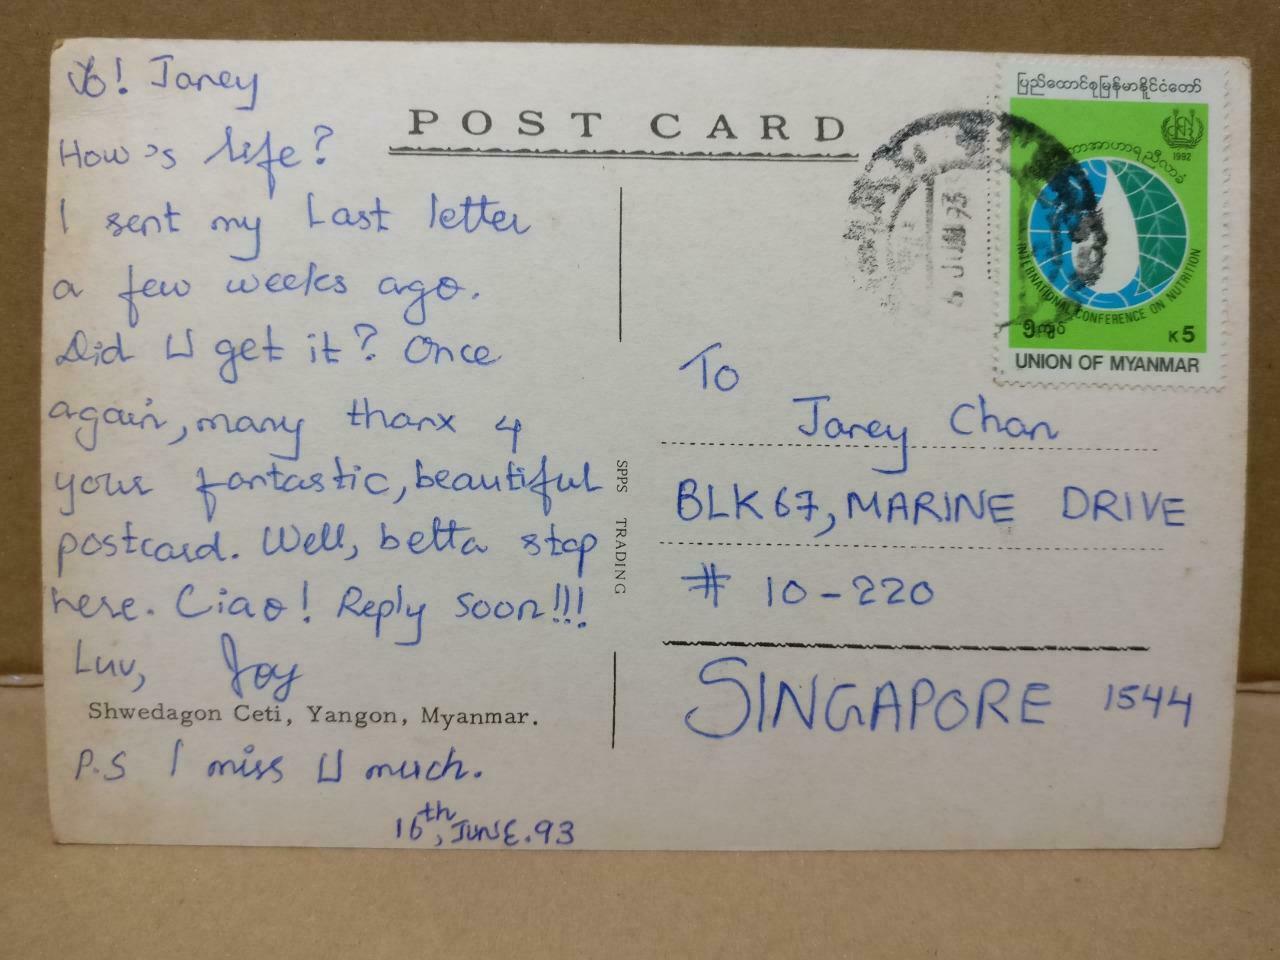 Yo! Janey
How's life?
I sent my last letter
a few weeks ago.
Did U get it? Once
again, many thanx 4
your fantastic, beautiful
postcard. Well, betta stop
here. Ciao! Reply soon!!!
Luv, Joy
Shwedagon Ceti, Yangon, Myanmar.
P.S I miss U much.
16th, JUNE. 93
POST CARD
SPPS TRADING
ပြည်ထောင်စုမြန်မာနိုင်ငံတော်
1992
INTERNATIONAL CONFERENCE ON NUTRITION
၅ကျပ်
K5
UNION OF MYANMAR
To
Janey Chan
BLK 67, MARINE DRIVE
# 10-220
SINGAPORE 1544